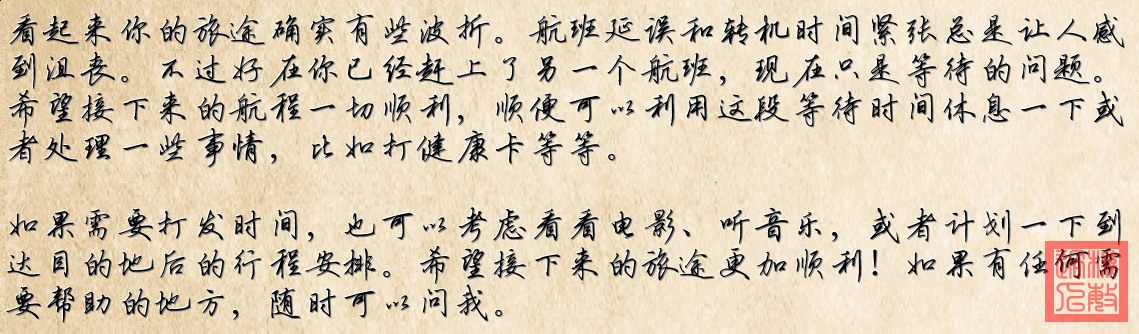 看起来你的旅途确实有些波折。航班延误和转机时间紧张总是让人感
到沮丧。不过好在你已经赶上了另一个航班，现在只是等待的问题。
希望接下来的航程一切顺利，顺便可以利用这段等待时间休息一下或
者处理一些事情，比如打健康卡等等。
如果需要打发时间，也可以考虑看看电影、听音乐，或者计划一下到
达目的地后的行程安排。希望接下来的旅途更加顺利！如果有任何需
要帮助的地方，随时可以问我。